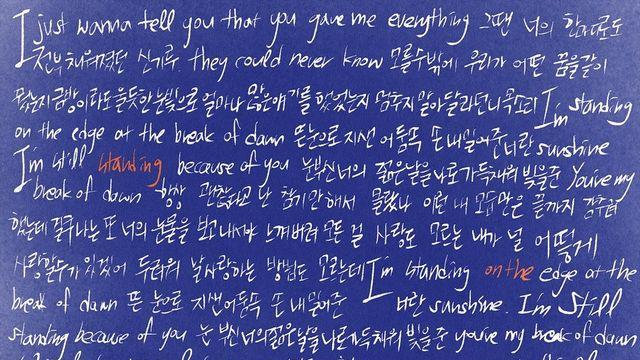 I just wanna tell you that you gave me everything 그땐 너의 한마디로도
전부 채워졌던 신기루. they could never know 모를수밖에 우리가 어떤 꿈을 같이
꿨는지 금방이라도 울듯한 눈빛으로 얼마나 많은 얘기를 했었는지 멈추지 말아달라던 네 목소리 I'm standing
on the edge at the break of dawn 뜬 눈으로 지샌 어둠 속 손 내밀어준 너란 sunshine
I'm still standing because of you 눈부신 너의 젊은 날을 나로 가득 채워 빛을 준 You're my
break of dawn 항상 괜찮다고 난 참기만 해서 몰랐나 이런 내 모습 맘은 끝까지 감추려
했는데 질리나는 또 너의 눈물을 보고 나서야 느껴버려 모든 걸 사랑도 모르는 내가 널 어떻게
사랑할수가 있겠어 두려워 날 사랑하는 방법도 모르는데 I'm standing on the edge at the
break of dawn 뜬 눈으로 지샌 어둠 속 손 내밀어준 너란 sunshine. I'm still
standing because of you 눈부신 너의 젊은 날을 나로 가득 채워 빛을 준 you're my break of dawn